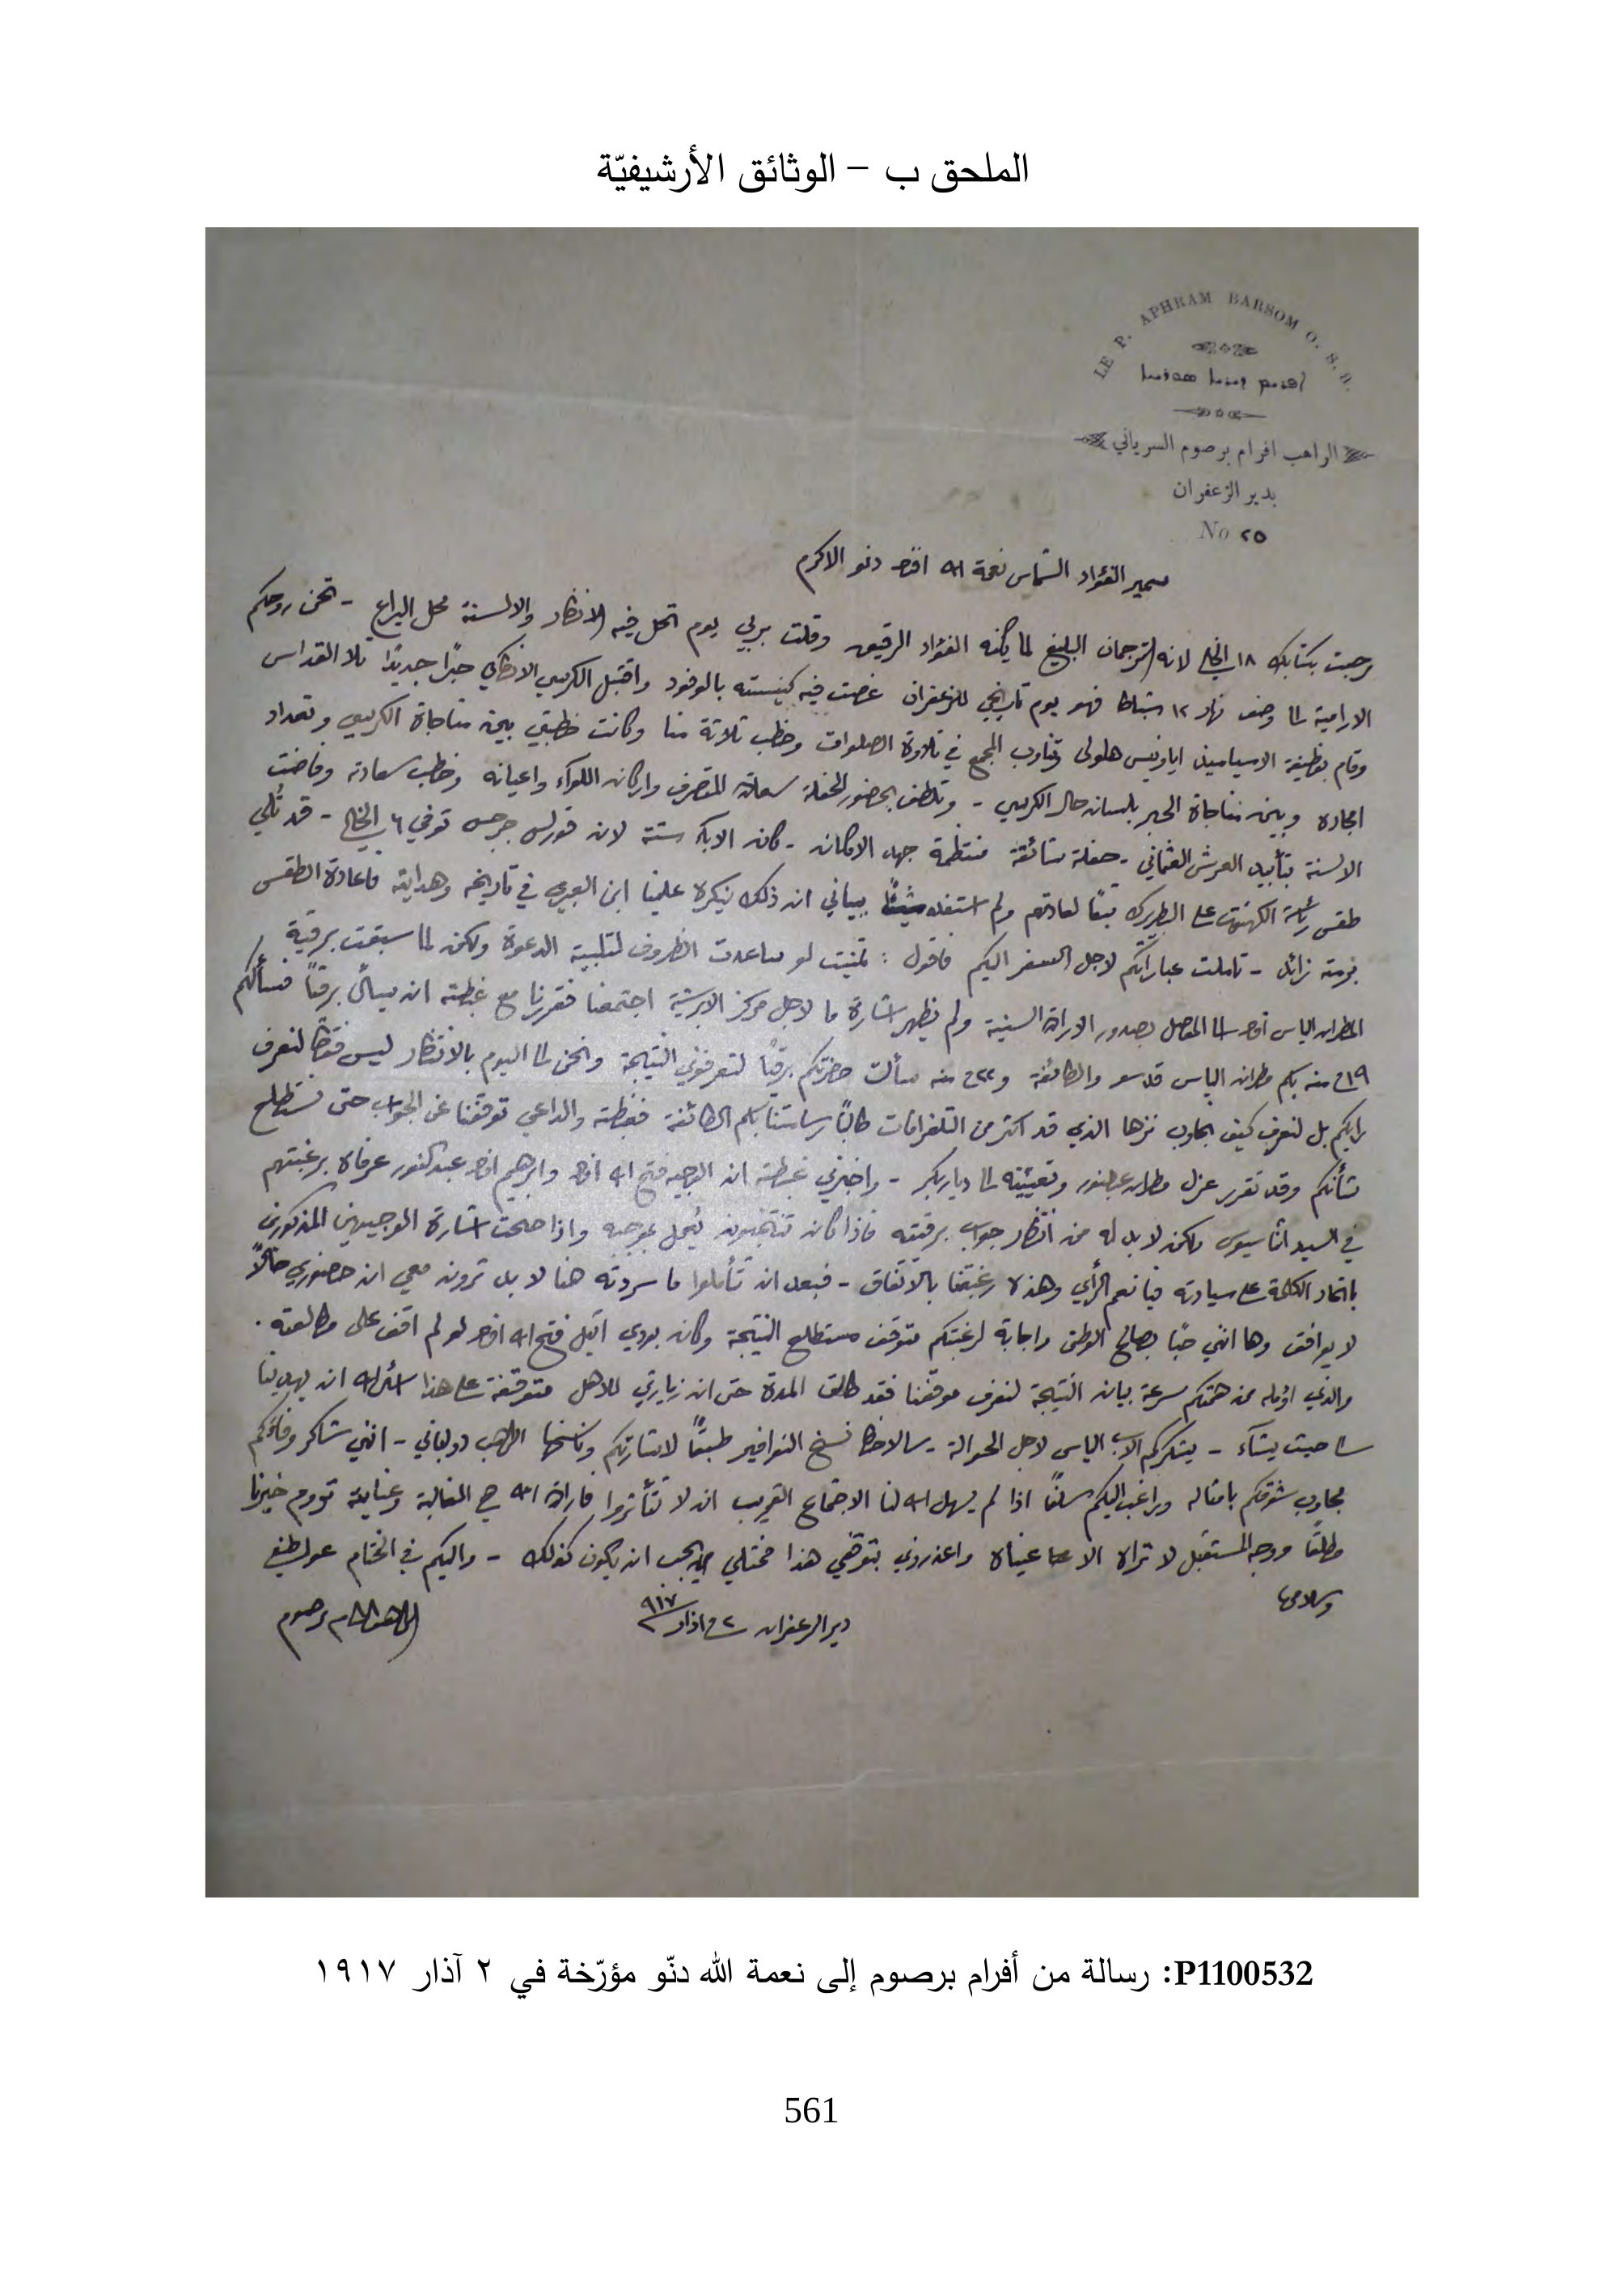 الملحق ب – الوثائق الأرشيفيّة
LE P. APHRAM BARSOM O. S.
الراهب افرام برصوم السرياني
بدير الزعفران
No ٢٥
سمير الفؤاد الشماس نعمة الله دنو الاكرم
رحبت بكتابك ١٨ لانه الترجمان البليغ لما يكنه الفؤاد الرقيق وقلت بربي يوم تحل فيه الانظار والالسنة محل اليراع -
الارامية الى وصف نهار ١٢ شباط فهو يوم تاريخي للزعفران غصت فيه كنيسته بالوفود واقتبل الكرسي الانطاكي حبرًا جديدًا تلا القداس
وقام بوظيفة الاسياميذ اياونيس هلولي وتناوب المجمع في تلاوة الصلوات وخطب ثلاثة منا وكانت خطبتي بين مناجاة الكرسي وتعداد
امجاده وبين مناجاة الحبر بلسان حال الكرسي - وتلطف بحضور الحفلة سعادة المتصرف واركان اللواء واعيانه وخطب سعادته وفاضت
الالسنة بتأييد العرش العثماني - حفلة شائقة منتظمة جهد الامكان - كان الاباء ستة لان قورلس جرجس توفي ٦ - قد تُلي
طقس رئاسة الكهنوت على البطريرك تبعًا لعادتهم ولم بياني ان ذلك ينكره علينا ابن العبري في تاريخه وهدايته فاعادة الطقس
زائد - تاملت عباراتكم لاجل السفر اليكم فاقول : تمنيت لو ساعدت الظروف لتلبية الدعوة ولكن لما سبقت برقية
المطران الياس الى الموصل بصدور الارادة السنية ولم يظهر اشارة ما لاجل مركز الابرشية اجتمعنا فقررنا مع غبطته ان يسأل برقيًا فسألكم
١٩ منه بكم مطران الياس قدسو والطائفة و٢٢ منه سألت حضرتكم برقيًا لتعرفوني النتيجة ونحن الى اليوم بالانتظار ليس فقط لنعرف
رايكم بل لنعرف كيف يجاوب نزها الذي قد اكثر من التلغرافات طالبًا الطائفة فغبطته والداعي توقفنا عن الجواب حتى نستطلع
شأنكم وقد تقرر عزل مطران وتعيينه الى دياربكر - واخبرني غبطته ان الوجيه فتح الله وابرهيم عبدالنور عرفاه برغبتهم
في السيد اثناسيوس ولكن لا بد له من انتظار جواب برقيته فاذا كان تنتخبون يُعمل بموجبه واذا صحت اشارة الوجيهين المذكورين
باتحاد الكلمة على سيادته فيا نعم الرأي وهذه رغبتنا بالاتفاق - فبعد ان تتأملوا ما سردته هنا لا بد ترون معي ان حضوري حالًا
لا يوافق وها انني حبًا بصالح الوطن واجابة لرغبتكم متوقف مستطلع النتيجة وكان بودي فتح الله لو لم اقف على مطالعته .
والذي اؤمله من همتكم سرعة بيان النتيجة لنعرف موقفنا فقد طالت المدة حتى ان زيارتي للاهل متوقفة على هذا اسأل الله ان يهدينا
الى حيث يشاء - يشكركم الاب الياس لاجل الحوالة - سالاحظ نسخ النوافير طبقًا لاشارتكم وناسخها الراهب دولباني - انني شاكر وفاءكم
مجاوب شوقكم بامثاله وراغب اليكم سلفًا اذا لم يسهل الله لنا الاجتماع القريب ان لا تتأثروا فارادة الله هي الغالبة وعنايته تروم خيرنا
مطلقًا ووجه المستقبل لا تراه الا عيناه واعذروني بتوقفي هذا فمثلي يجب ان يكون كذلك - واليكم في الختام عواطفي
وسلامي
دير الزعفران ٢ اذار ٩١٧
الراهب افرام برصوم
P1100532: رسالة من أفرام برصوم إلى نعمة الله دنّو مؤرّخة في ٢ آذار ١٩١٧
561